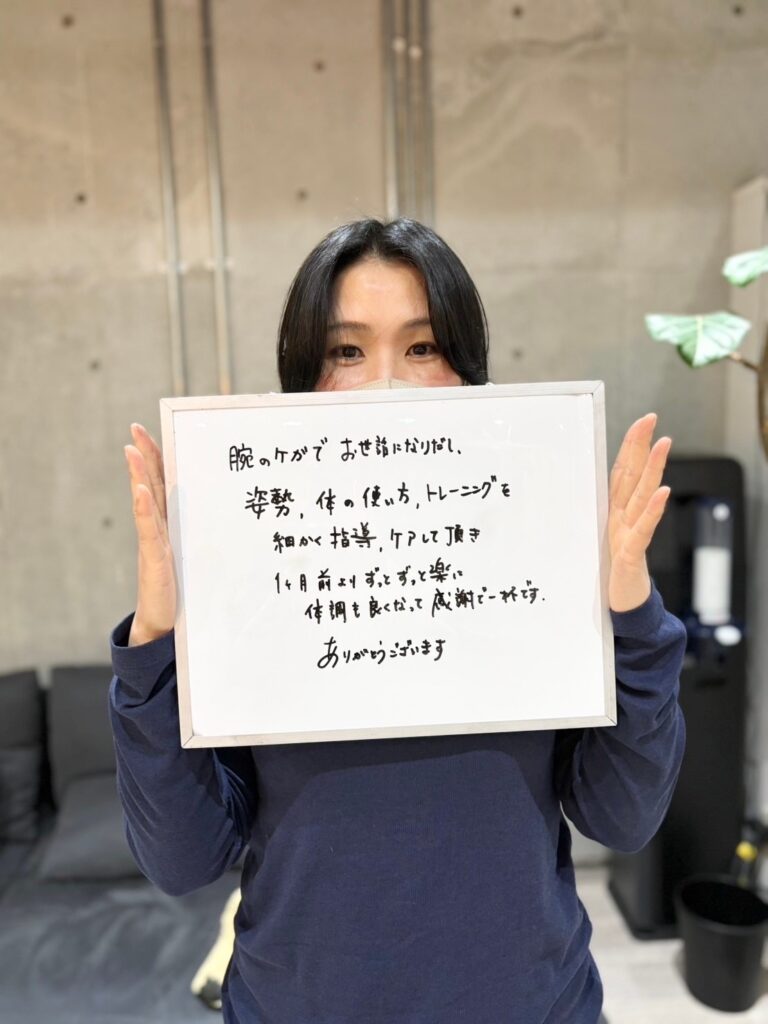 腕のケガで お世話になりだし、
姿勢、体の使い方、トレーニングを
細かく指導、ケアして頂き
1ヶ月前よりずっとずっと楽に
体調も良くなって感謝で一杯です.
ありがとうございます